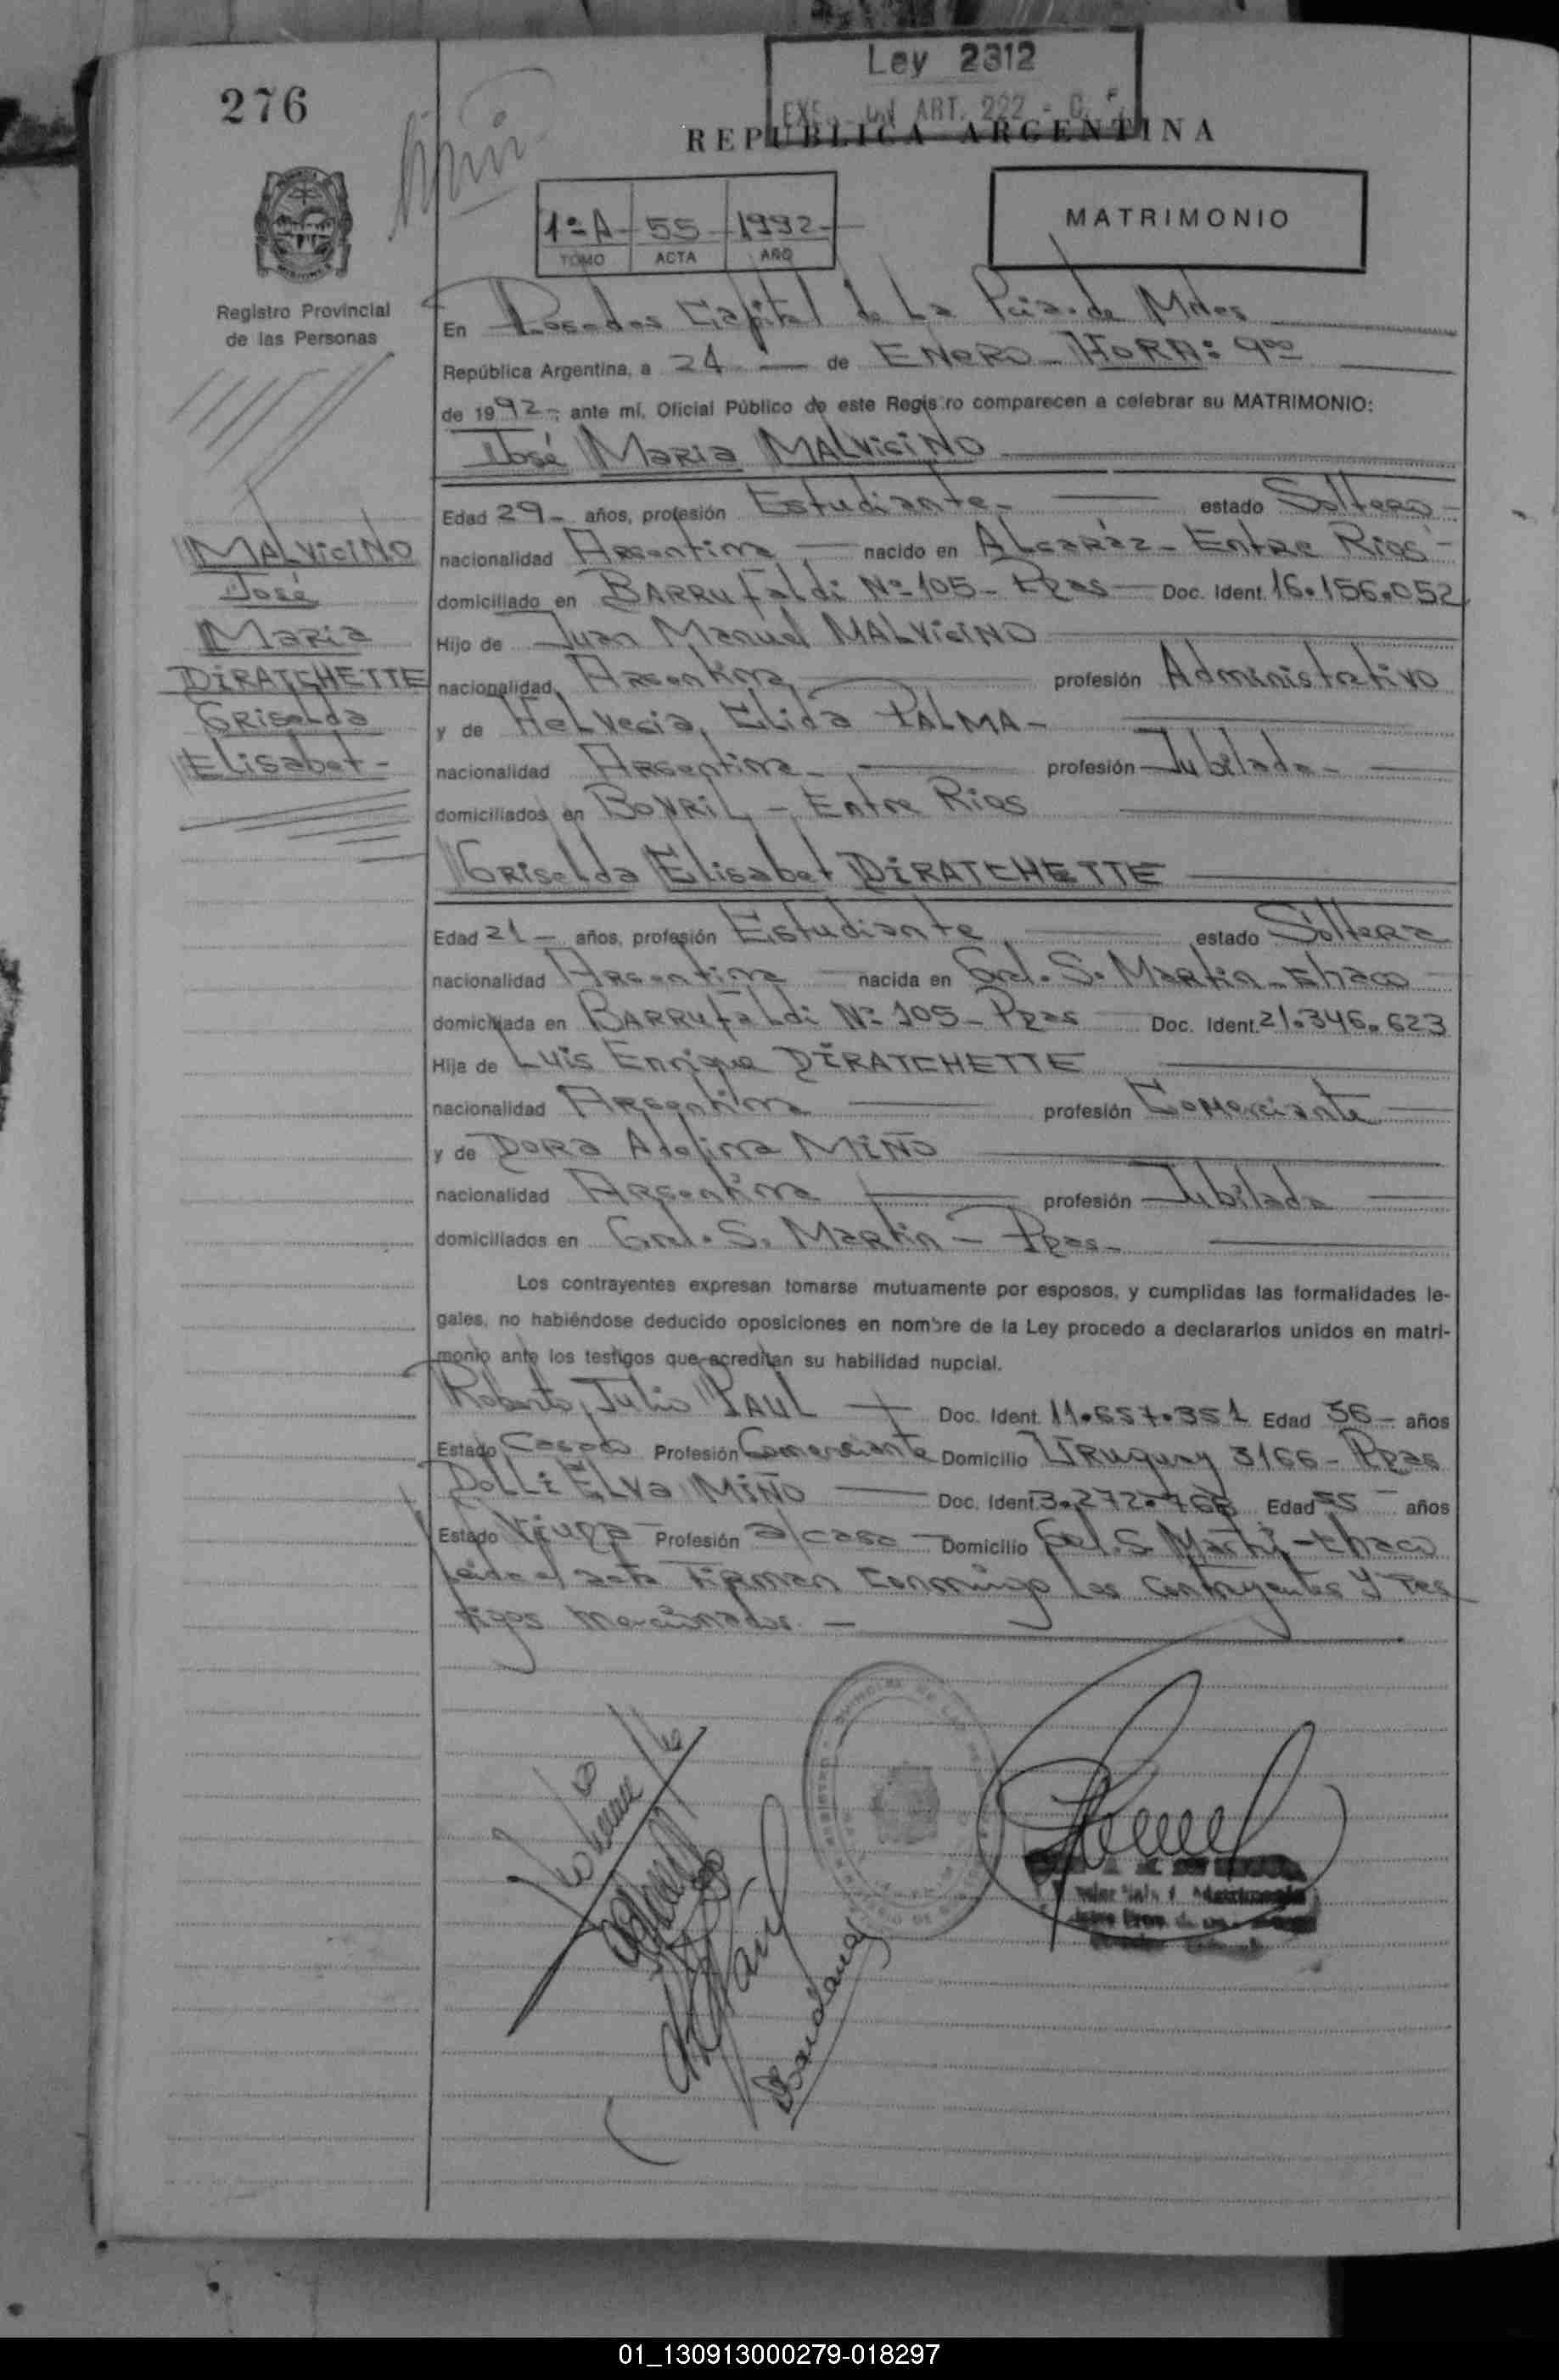 276
Ley 2312
ART. 222
REPUBLICA ARGENTINA
1º A - 55 - 1992 -
TOMO ACTA AÑO
MATRIMONIO
Registro Provincial
de las Personas
En Posadas Capital de La Pcia. de Mnes
República Argentina, a 24 — de ENERO - HORA: 9ºº
de 1992 - ante mí, Oficial Público de este Registro comparecen a celebrar su MATRIMONIO:
José Maria MALViciNO
Edad 29 - años, profesión Estudiante - estado Soltero -
nacionalidad Argentina — nacido en Alcaráz - Entre Rios -
domiciliado en BARRUfaldi Nº 105 - Ppas — Doc. Ident. 16.156.052
Hijo de Juan Manuel MALViciNO
nacionalidad Argentina profesión Administrativo
y de HeLvecia, Elida PALMA -
nacionalidad Argentina - profesión Jubilada -
domiciliados en BOVRiL - Entre Rios
MALViciNO
José
Maria
DiRATCHETTE
GRiselda
Elisabet -
GRiselda Elisabet DiRATCHETTE
Edad 21 - años, profesión Estudiante estado Soltera
nacionalidad Argentina — nacida en Gral. S. Martin - Chaco
domiciliada en BARRUfaldi Nº 105 - Ppas Doc. Ident. 21.346.623
Hija de Luis Enrique DiRATCHETTE
nacionalidad Argentina profesión Comerciante
y de DORA Adelina MIÑO
nacionalidad Argentina profesión Jubilada
domiciliados en Gral. S. Martin - Ppas -
Los contrayentes expresan tomarse mutuamente por esposos, y cumplidas las formalidades le-
gales, no habiéndose deducido oposiciones en nombre de la Ley procedo a declararlos unidos en matri-
monio ante los testigos que acreditan su habilidad nupcial.
Roberto, Julio PAUL — Doc. Ident. 11.657.351 Edad 36 - años
Estado Casado Profesión Comerciante Domicilio URuguay 3166 - Ppas
DoLLi ELva MIÑO — Doc. Ident. Edad 55 años
Estado Viuda - Profesión a/casa - Domicilio Gral. S. Martin - Chaco
Leida el acta Firman conmigo Los contrayentes y tes
tigos mencionados. —
01_130913000279-018297